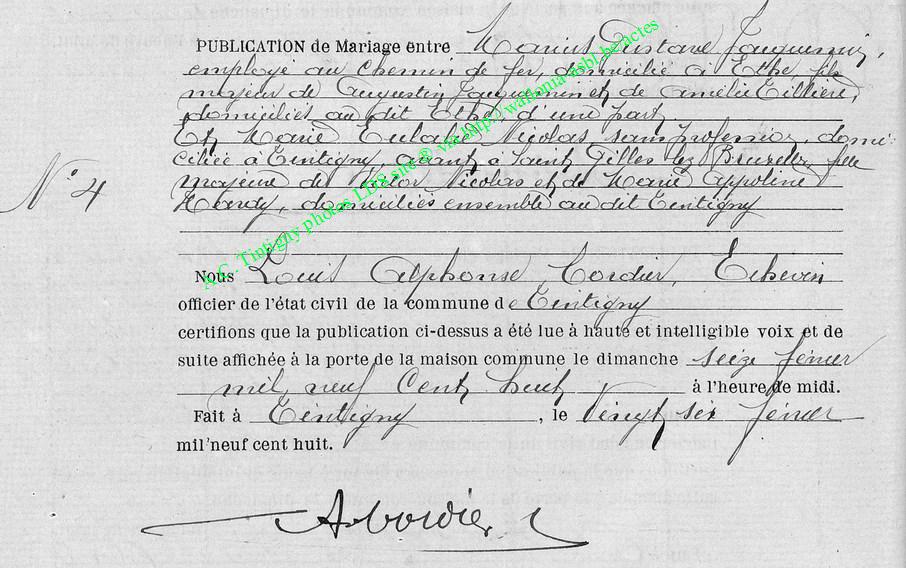 PUBLICATION de Mariage entre Marius Gustave Jacquemin,
employé au chemin de fer, domicilié à Ethe, fils
majeur de Augustin Jacquemin et de Amélie Tillière,
domiciliés au dit Ethe, d'une part
Et Marie Eulalie Nicolas sans profession, domi-
ciliée à Tintigny, avant à Saint Gilles lez Bruxelles, fille
majeure de Victor Nicolas et de Marie Appoline
Hardy, domiciliés ensemble au dit Tintigny
N° 4
Nous Louis Alphonse Cordier, Echevin
officier de l'état civil de la commune de Tintigny
certifions que la publication ci-dessus a été lue à haute et intelligible voix et de
suite affichée à la porte de la maison commune le dimanche seize février
mil neuf cent huit à l'heure de midi.
Fait à Tintigny, le vingt six février
mil neuf cent huit.
A Cordier
A.C. Tintigny photos LDS site® via http://wallonia-asbl.be/actes